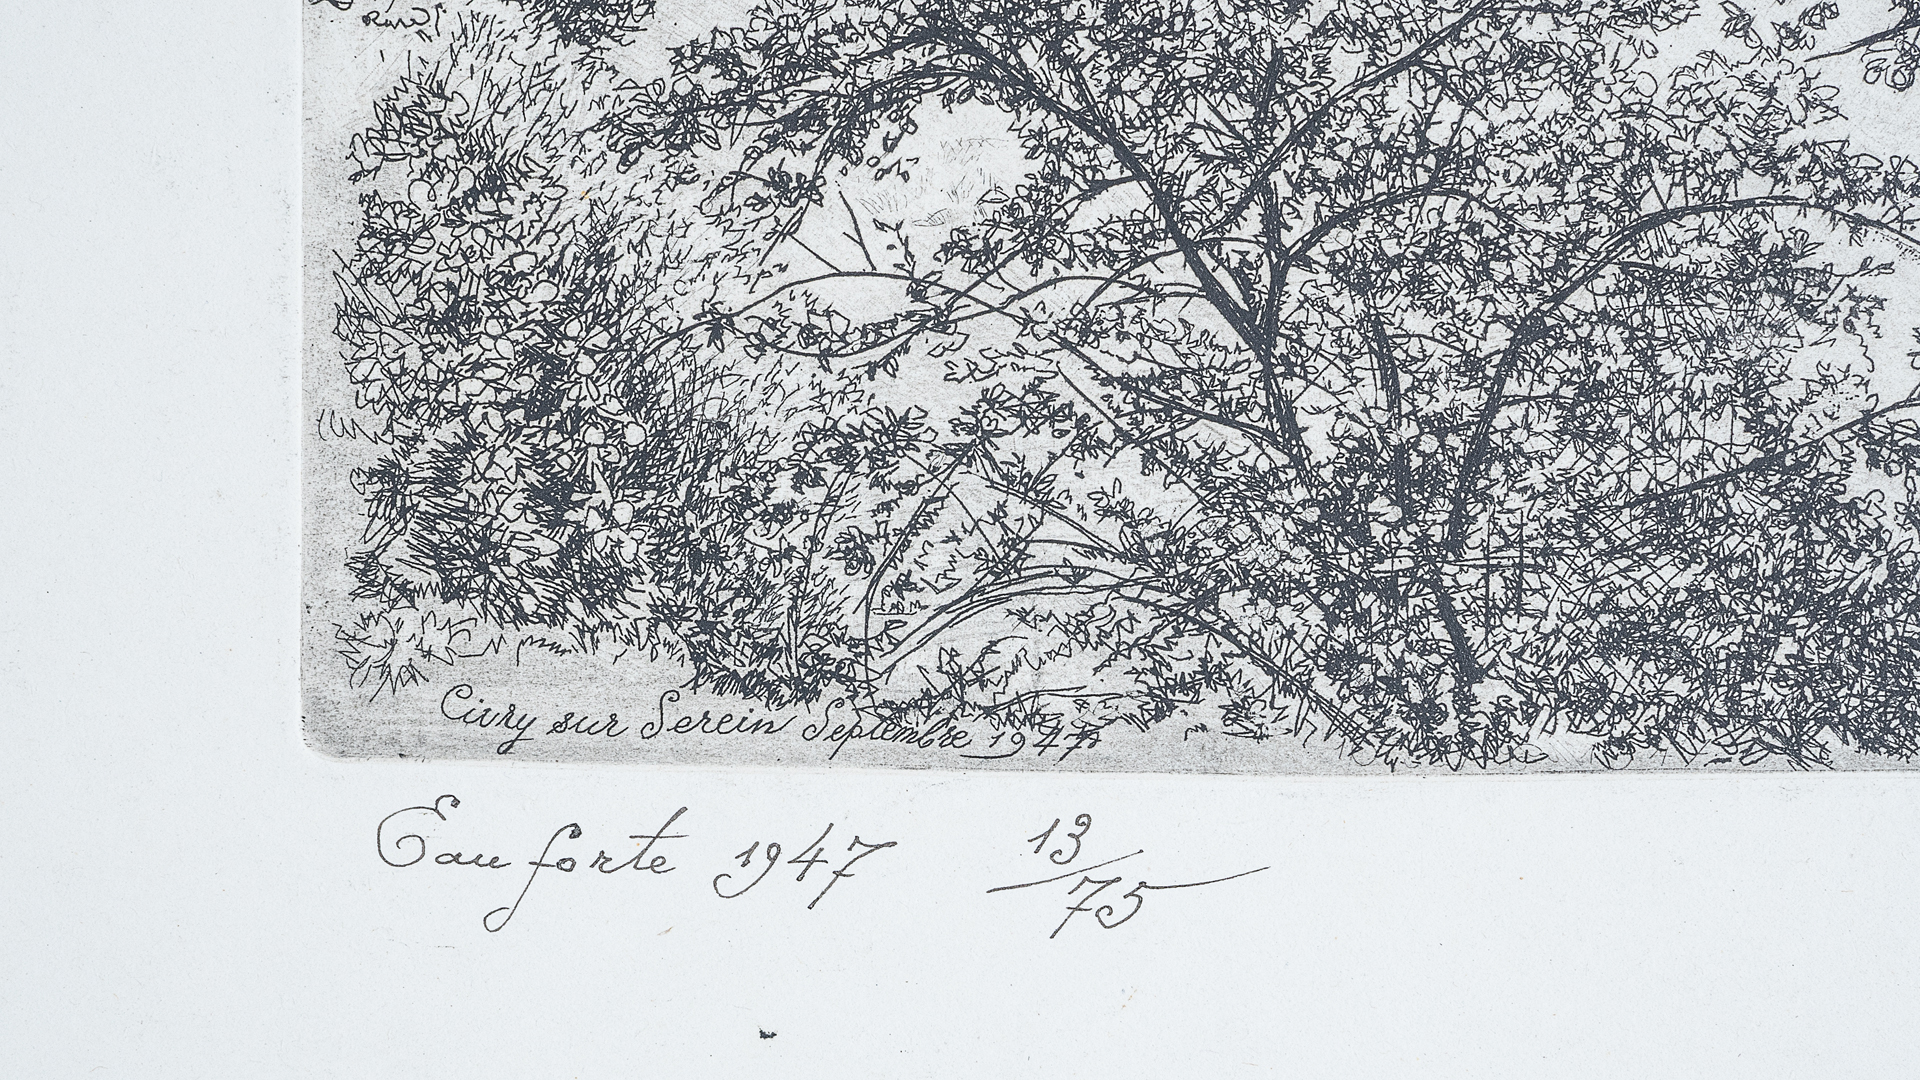 Civry sur Serein Septembre 1947
Eau forte 1947 13/75